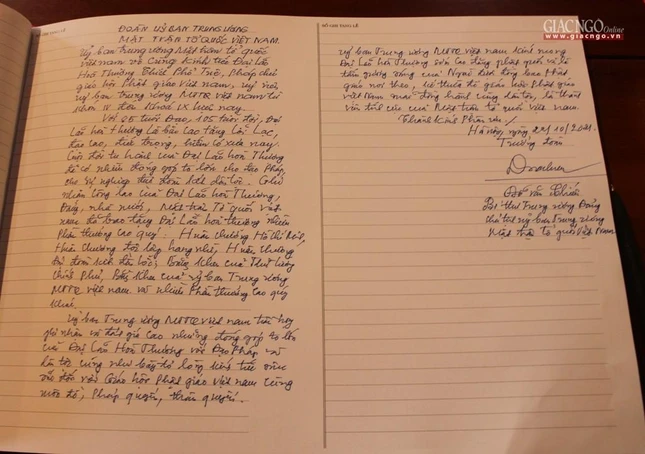 SỔ GHI TANG LỄ
ĐOÀN UỶ BAN TRUNG ƯƠNG
MẶT TRẬN TỔ QUỐC VIỆT NAM.
Uỷ ban Trung ương Mặt trận tổ quốc
Việt nam vô Cùng Kính tiếc Đại Lão
Hoà Thượng Thích Phổ Tuệ, Pháp chủ
giáo hội Phật giáo Việt nam, uỷ viên
uỷ ban Trung ương MTTQ Việt nam từ
khoá IV đến khoá IX hiện nay.
Với 85 tuổi Đạo, 105 tuổi đời, Đại
Lão hoà Thượng là bậc cao tăng
đạo cao, đức trọng, hiếm có xưa nay.
Cuộc đời tu hành của Đại Lão hoà Thượng
đã có nhiều đóng góp to lớn cho đạo Pháp,
cho sự nghiệp đại đoàn kết dân tộc. Ghi
nhận công lao của Đại Lão hoà Thượng,
Đảng, nhà nước, Mặt trận Tổ quốc Việt
nam đã trao tặng Đại Lão hoà thượng nhiều
Phần thưởng cao quý: Huân chương Hồ Chí Minh,
Huân chương độc lập hạng nhì, Huân chương
Đại đoàn kết dân tộc; Bằng khen của Thủ tướng
Chính Phủ, Bằng khen của uỷ ban Trung ương
MTTQ Việt nam và nhiều Phần thưởng cao quý
khác.
Uỷ ban Trung ương MTTQ Việt nam
ghi nhận và đánh giá cao những đóng góp to lớn
của Đại Lão Hoà Thượng với Đạo Pháp và
dân tộc cũng như bày tỏ lòng
đối với Giáo hội Phật giáo Việt nam cùng
môn đồ, Pháp quyến, thân quyến.
SỔ GHI TANG LỄ
Uỷ ban Trung ương MTTQ Việt nam kính mong
Đại Lão Hoà Thượng sớm cao đăng Phật quốc và là
tấm gương sáng của Ngài luôn đồng bào Phật
giáo noi theo, kế thừa để giáo hội Phật giáo
Việt Nam mãi đồng hành cùng dân tộc, là thành
viên tích cực của Mặt trận tổ quốc Việt nam.
Thành kính Phân ưu./
Hà nội, ngày 22/10/2021
Trưởng đoàn
Đỗ Văn Chiến
Bí thư Trung ương Đảng
Chủ tịch uỷ ban Trung ương
Mặt trận tổ quốc Việt Nam
GIACNGO Online
www.giacngo.vn